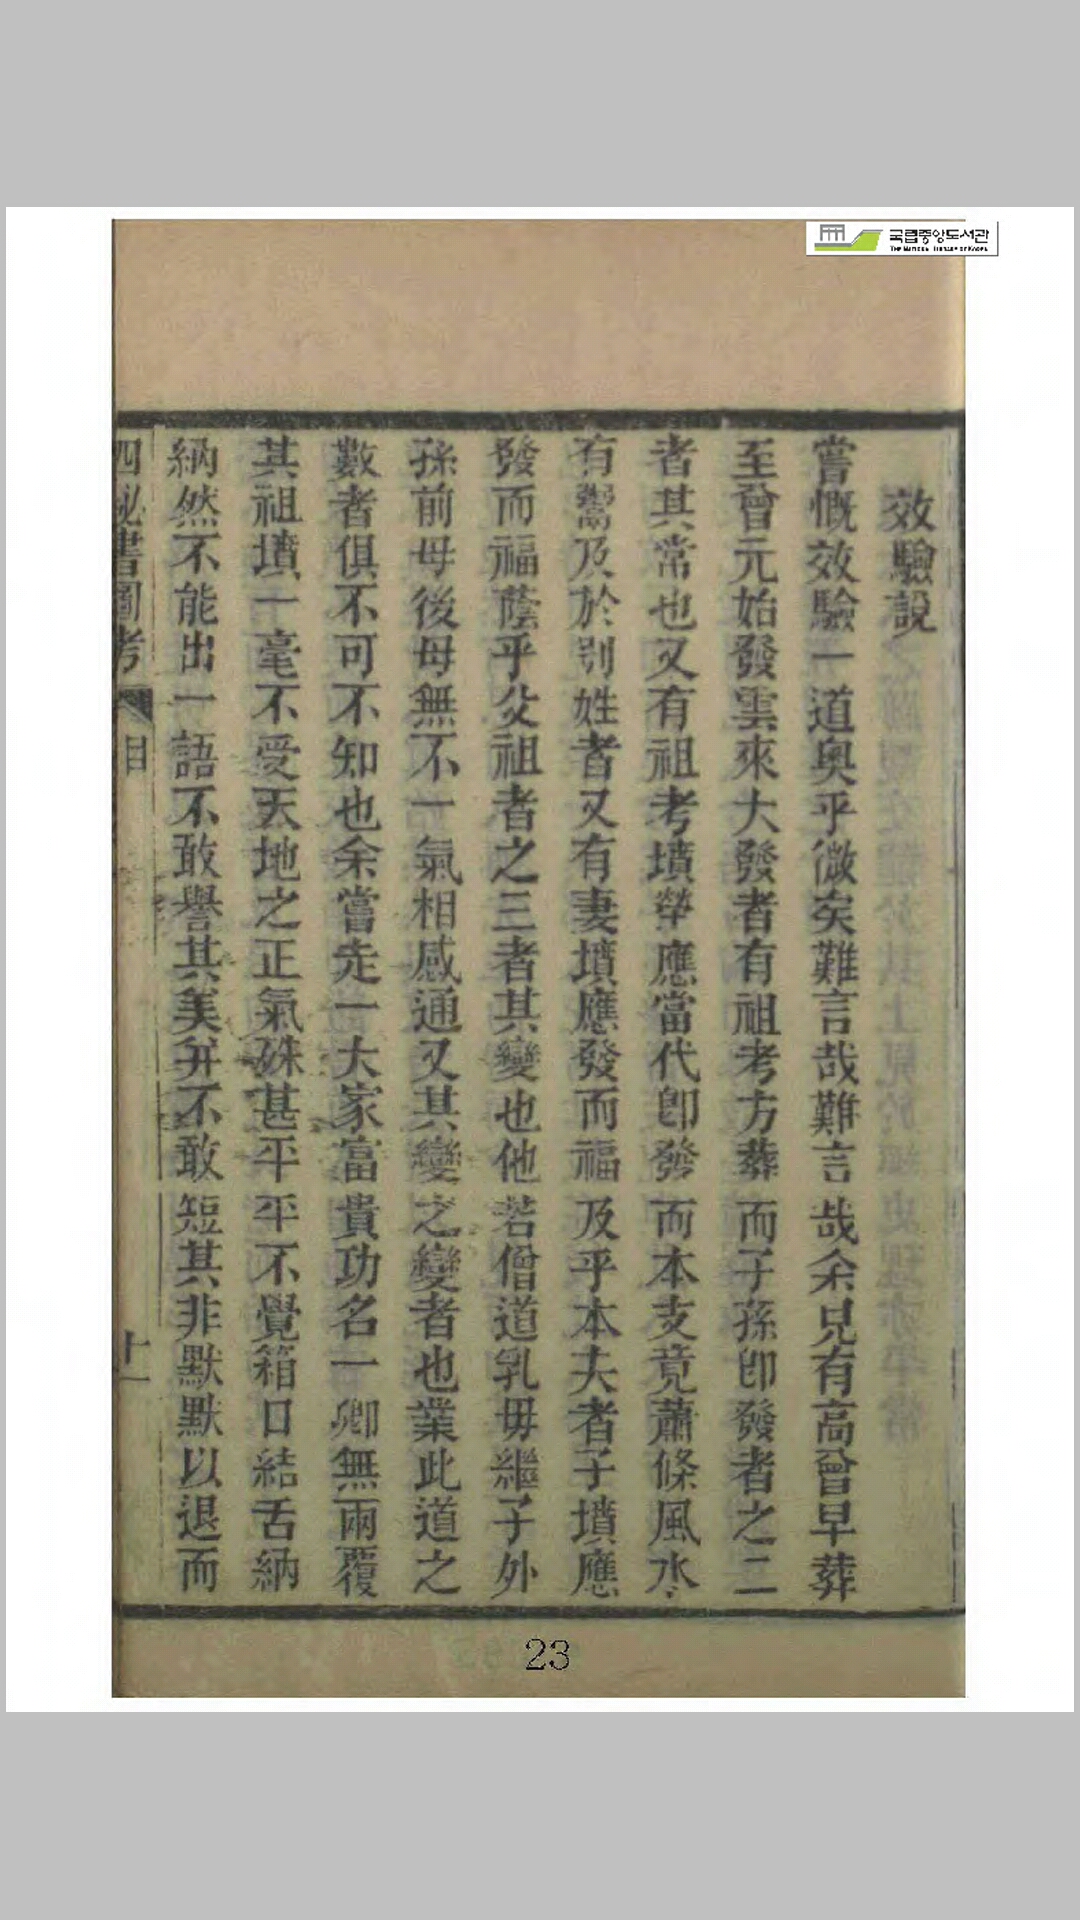 국립중앙도서관
THE NATIONAL LIBRARY OF KOREA
效驗說
嘗慨效驗一道奧乎微矣難言哉難言哉余見有高曾早葬
至曾元始發雲來大發者有祖考方葬而子孫即發者之二
者其常也又有祖考墳塋應當代卽發而本支竟蕭條風水
有鬻及於別姓者又有妻墳應發而福及乎本夫者子墳應
發而福蔭乎父祖者之三者其變也他若僧道乳母繼子外
孫前母後母無不一氣相感通又其變之變者也業此道之
數者俱不可不知也余嘗走一大家富貴功名一鄉無兩覆
其祖墳一毫不受天地之正氣殊甚平平不覺箝口結舌納
納然不能出一語不敢譽其美并不敢短其非默默以退而
四秘書圖考 目 十一
23